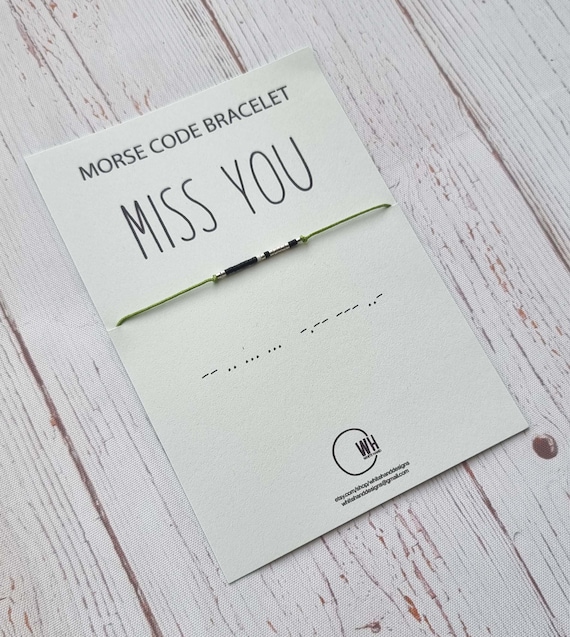 MORSE CODE BRACELET
MISS YOU
-- .. ... ... -.-- --- ..-
WH
etsy.com/shop/whitishanddesigns
whitishanddesigns@gmail.com